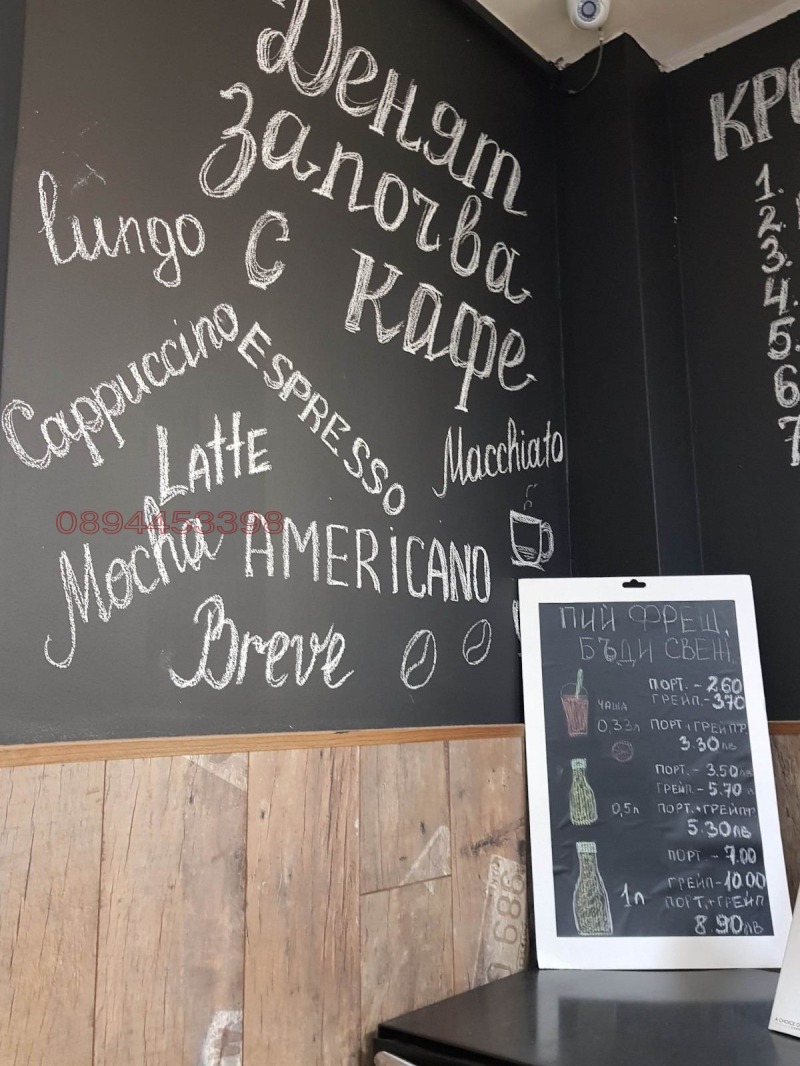 Денят
започва
с кафе
lungo
Cappuccino
ESPRESSO
LATTE
Macchiato
0894453398
Mocha
AMERICANO
Breve
КРО
1.
2.
3.
4.
5.
6
7
ПИЙ ФРЕШ,
БЪДИ СВЕЖ.
ПОРТ. - 2.60
ГРЕЙП - 3.70
ЧАША
0,33л ПОРТ.+ГРЕЙПФ.
3.30 лв
ПОРТ. - 3.50
ГРЕЙП. - 5.70
0,5л ПОРТ.+ГРЕЙПФ
5.30лв
ПОРТ. - 7.00
ГРЕЙП - 10.00
1л ПОРТ.+ГРЕЙП
8.90лв
989